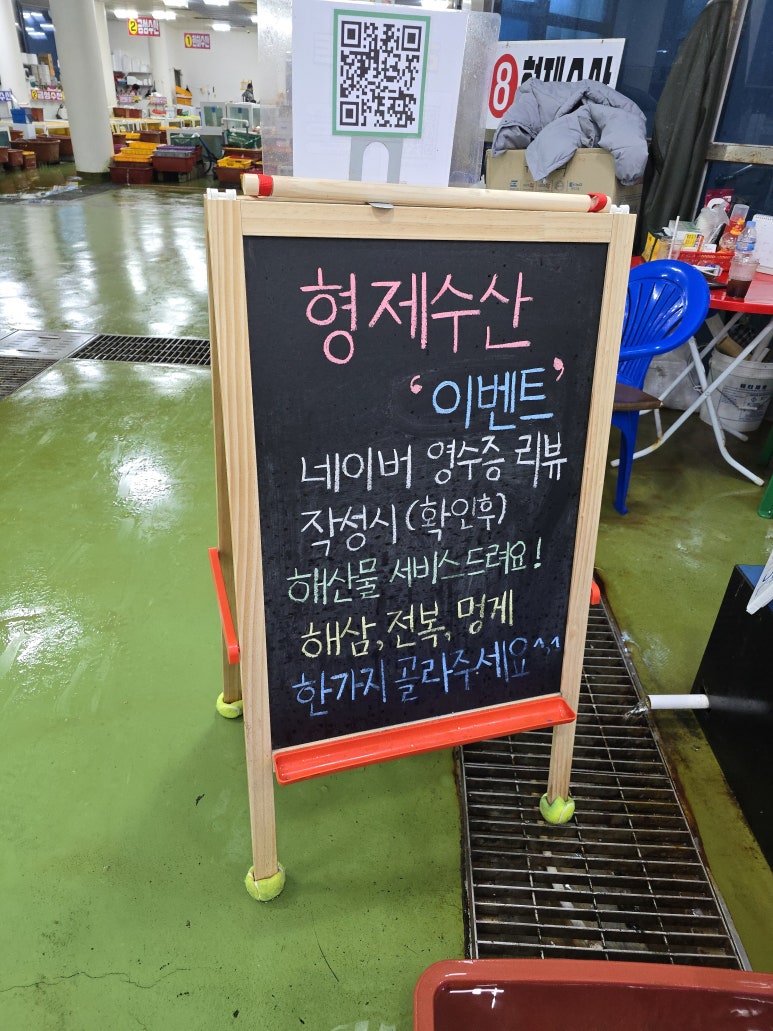 2 금성수산
1 금성수산
8 형제수산
형제수산
‘이벤트’
네이버 영수증 리뷰
작성시 (확인후)
해산물 서비스드려요!
해삼, 전복, 멍게
한가지 골라주세요^^